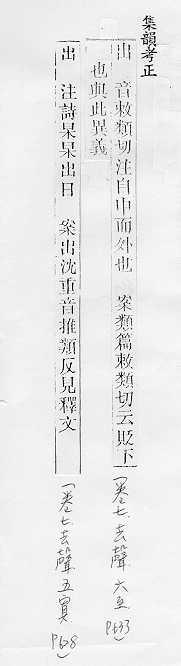 集韻考正
出　音敕類切注自中而外也　案類篇敕類切云貶下
也與此異義
(卷七 去聲 六至 P533)
出　注詩杲杲出日　案出沈重音推類反見釋文
(卷七 去聲 五寘 P68)